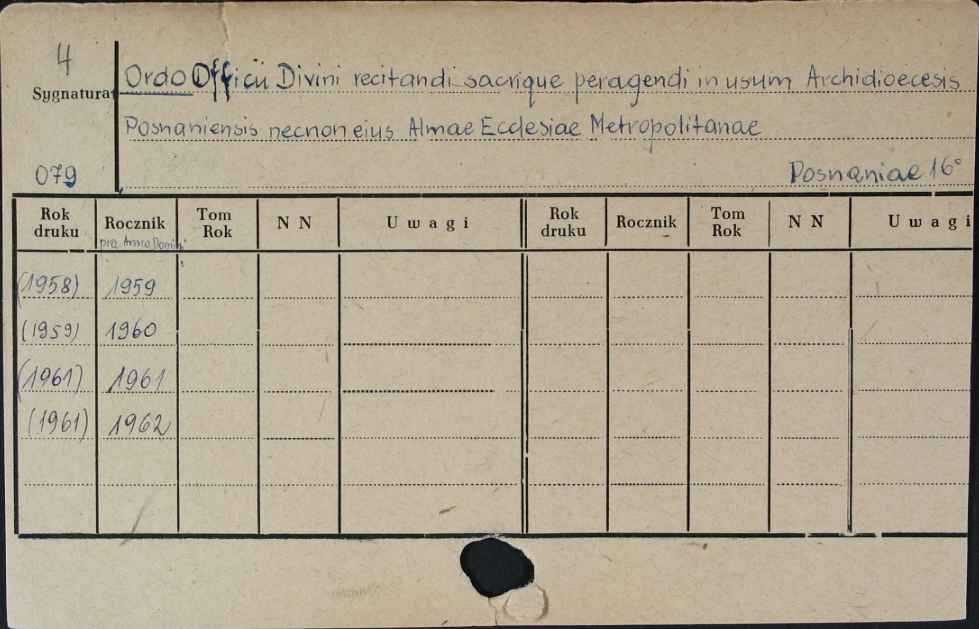 4
Sygnatura
079
Ordo Officii Divini recitandi sacrique peragendi in usum Archidioecesis
Posnaniensis necnon eius Almae Ecclesiae Metropolitanae
Posnaniae 16°
Rok druku Rocznik Tom Rok N N Uwagi Rok druku Rocznik Tom Rok N N Uwagi
pro Anno Domini
(1958) 1959
(1959) 1960
(1961) 1961
(1961) 1962